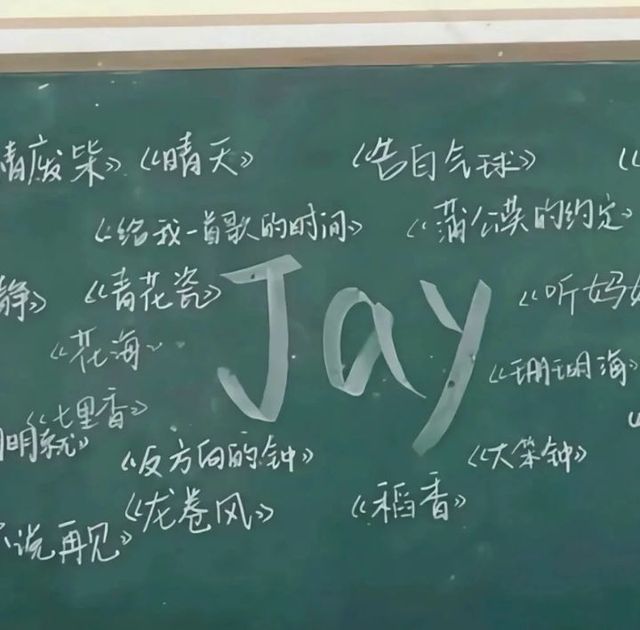 情废柴》 《晴天》 《告白气球》 《
《给我一首歌的时间》 《蒲公英的约定》
静》 《青花瓷》 Jay 《听妈妈
《花海》 《珊瑚海》
《七里香》
明明就》 《反方向的钟》 《大笨钟》
《龙卷风》 《稻香》
不说再见》